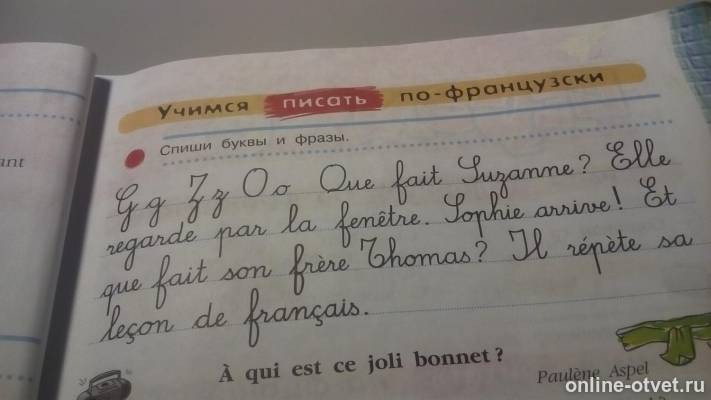 Учимся писать по-французски
Спиши буквы и фразы.
G g Z z O o Que fait Suzanne? Elle
regarde par la fenêtre. Sophie arrive! Et
que fait son frère Thomas? Il répète sa
leçon de français.
À qui est ce joli bonnet?
Paulène Aspel
ant
online-otvet.ru